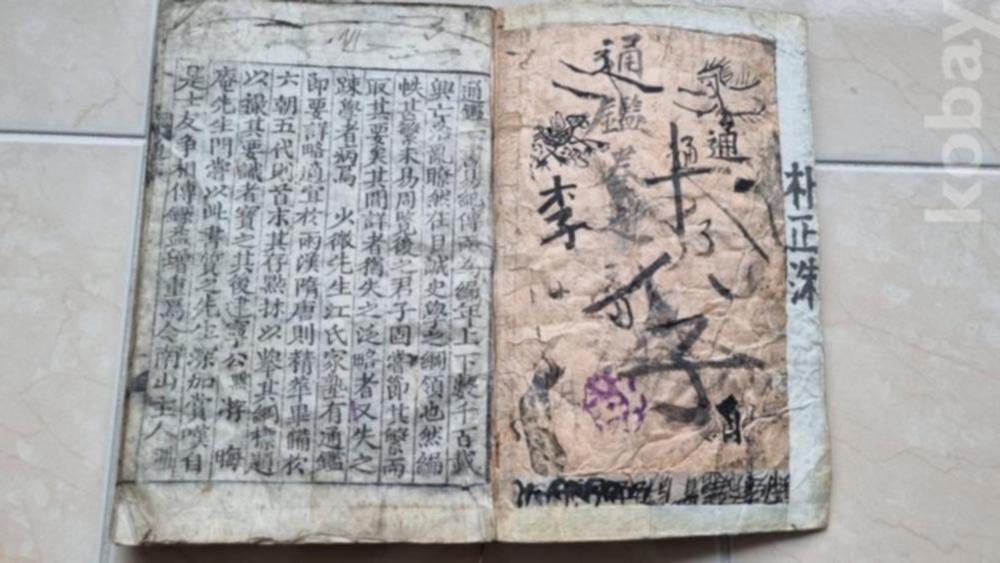 朴正洙
通
通鑑
李
子
通鑑一書易紀傳而為編年上下數千百載
興亡治亂瞭然在目誠史學之綱領也然編
帙甚繁未易周覽後之君子固嘗節其繁而
取其要矣其間詳者猶失之泛略者又失之
踈學者病焉 少微先生江氏家塾有通鑑
節要詳略適宜於兩漢隋唐則精華畢備於
六朝五代則首末具存點抹以舉其綱標題
以撮其要識者寶之其後建寧公默游 晦
庵先生門嘗以此書質之先生深加賞嘆自
是士友爭相傳錄益增重焉今南山主人淵
kobay